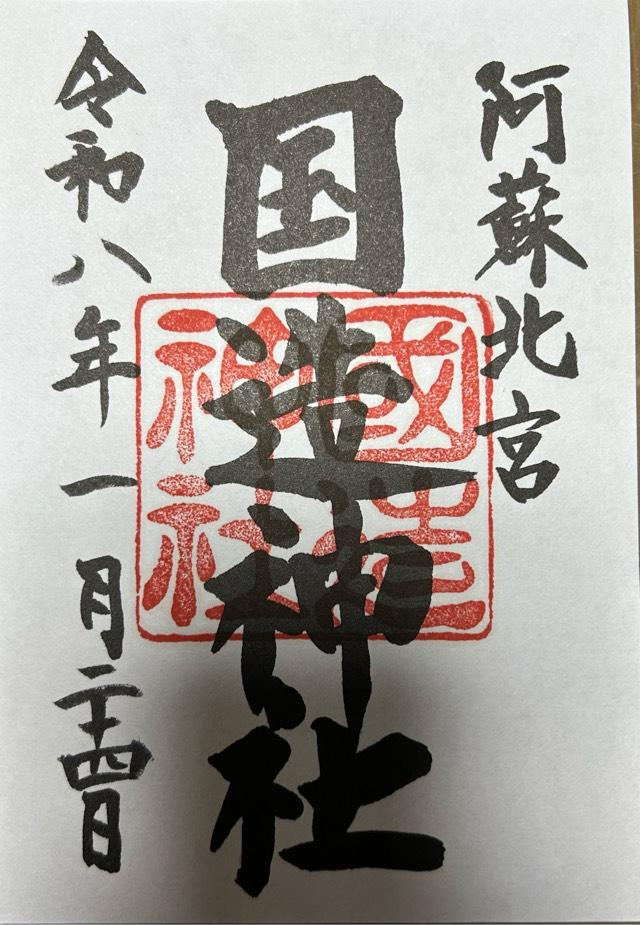 阿蘇北宮
国造神社
國造
神社
令和八年一月二十四日